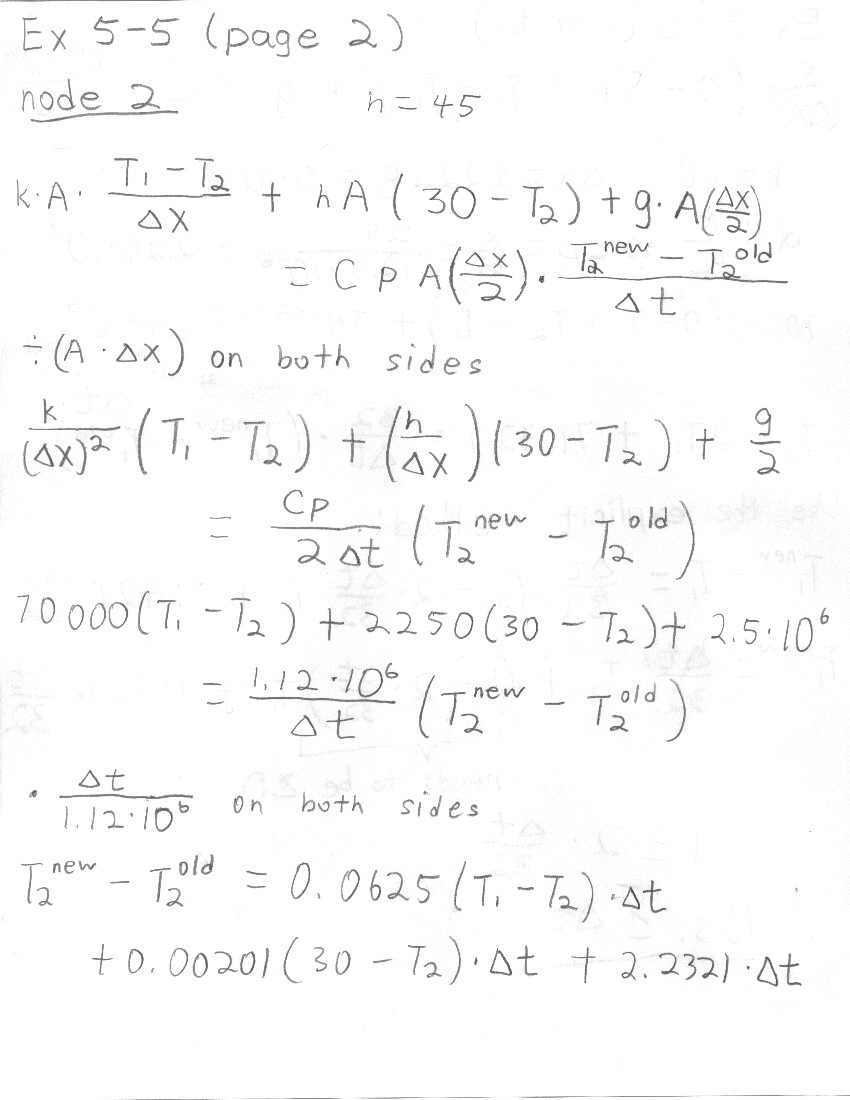 Ex 5-5 (page 2)
node 2 h = 45
k·A· (T₁ - T₂)/Δx + hA (30 - T₂) + g· A(Δx/2)
= C ρ A(Δx/2) · (T₂^new - T₂^old)/Δt
÷(A · Δx) on both sides
k/(Δx)² (T₁ - T₂) + (h/Δx)(30 - T₂) + g/2
= Cρ/(2 Δt) (T₂^new - T₂^old)
70 000(T₁ - T₂) + 2250(30 - T₂) + 2.5·10⁶
= 1.12·10⁶/Δt (T₂^new - T₂^old)
· Δt/(1.12·10⁶) on both sides
T₂^new - T₂^old = 0.0625 (T₁ - T₂) ·Δt
+ 0.00201 (30 - T₂) · Δt + 2.2321 · Δt